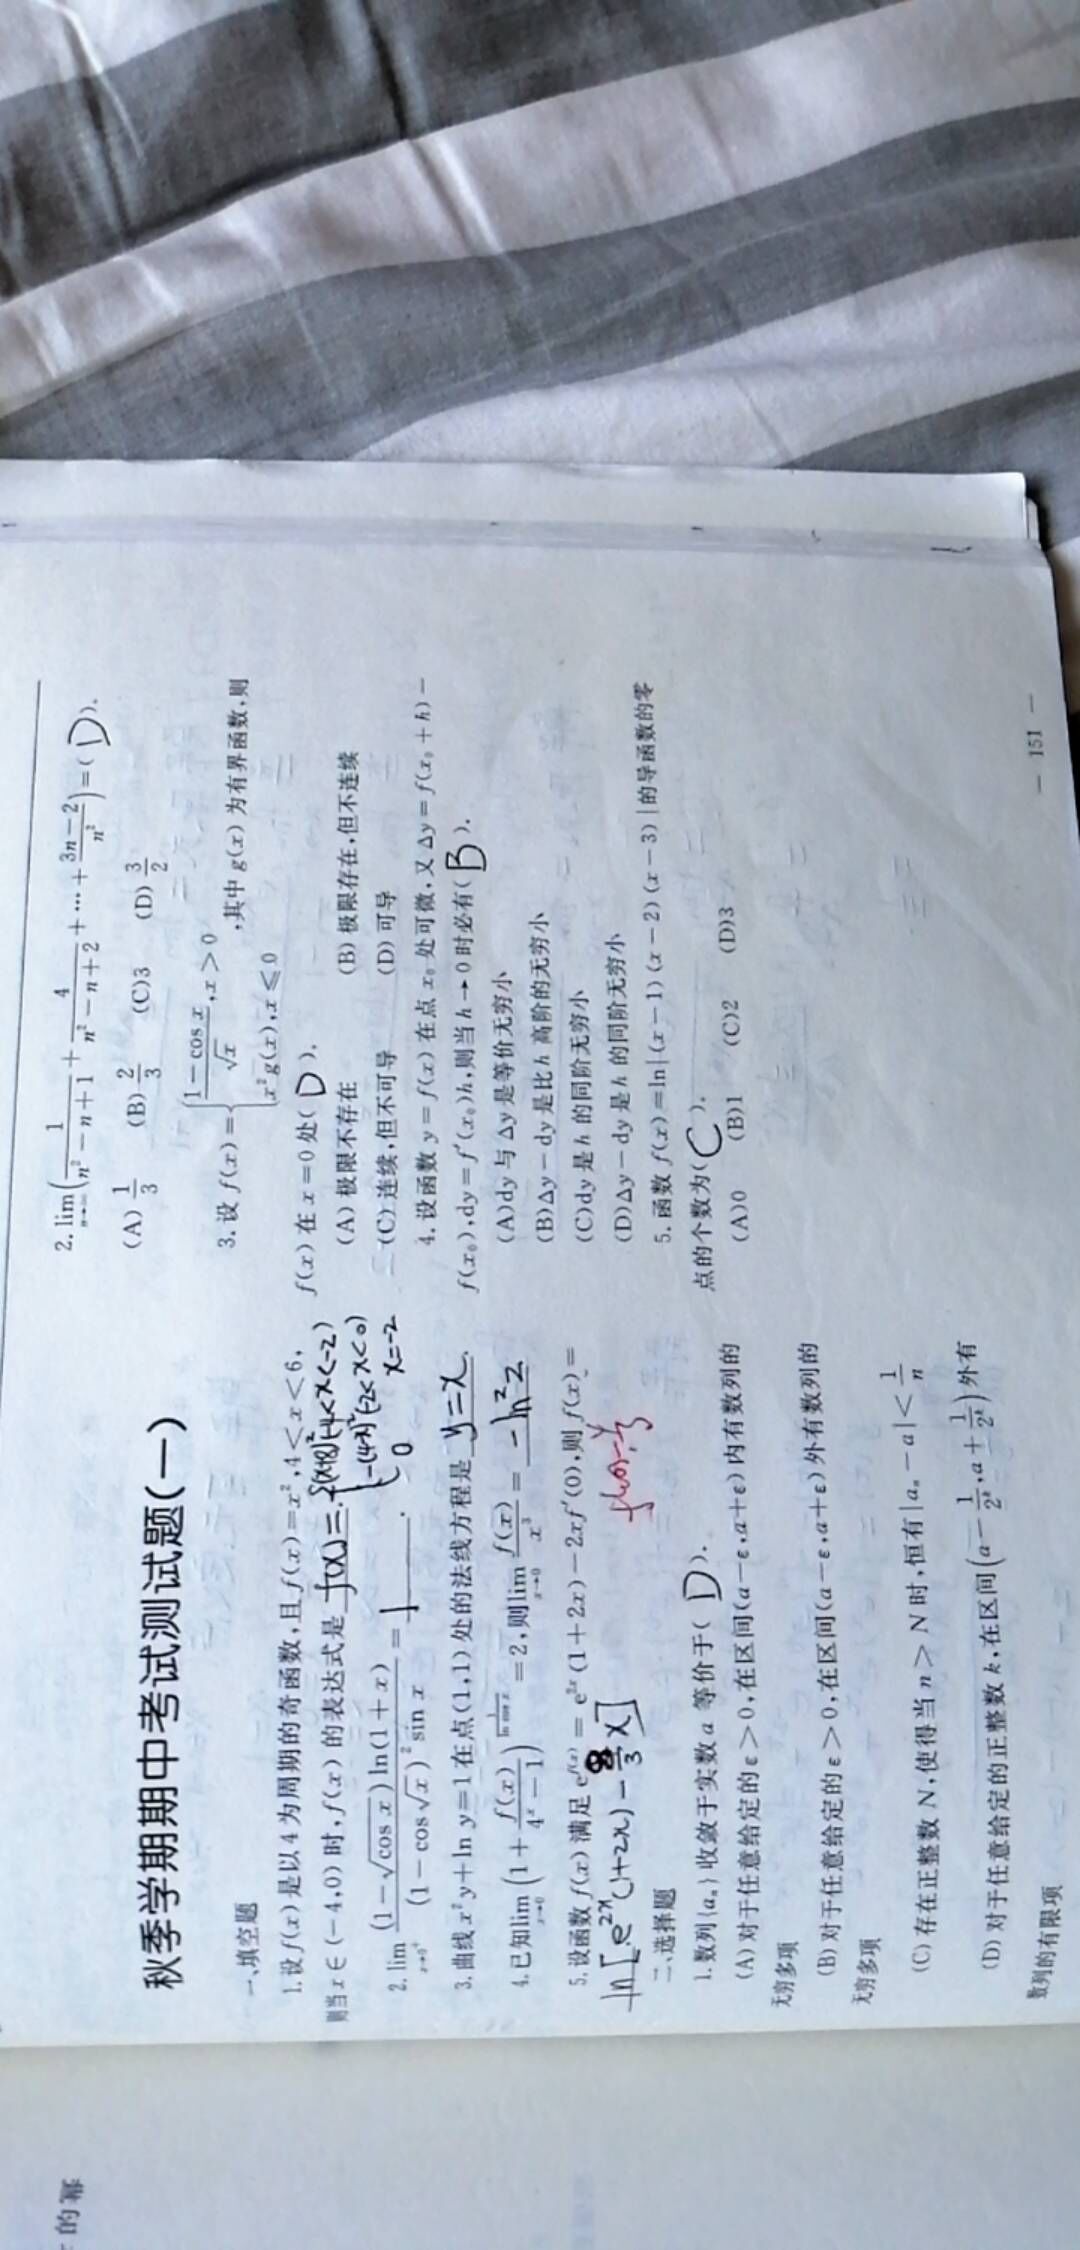 秋季学期期中考试测试题(一)
一、填空题
1. 设 f(x) 是以 4 为周期的奇函数,且 f(x) = x², 4 < x < 6,
则当 x ∈ (-4,0) 时, f(x) 的表达式是 f(x) = { -(x+8)² (-4<x<-2)
-(4-x)² (-2<x<0)
0 x=-2
2. lim_{x→0⁺} (1-√cos x) ln(1+x) / (1-cos√x)² sin x = 1 .
3. 曲线 x²y + ln y = 1 在点 (1,1) 处的法线方程是 y=x.
4. 已知 lim_{x→0} (1 + f(x)/(4ˣ-1))^{1/(ln cos x)} = 2, 则 lim_{x→0} f(x)/x³ = -ln²2
5. 设函数 f(x) 满足 e^{f(x)} = e^{2x}(1+2x) - 2xf′(0), 则 f(x) =
ln[e^{2x}(1+2x) - 8/3 x]
二、选择题
1. 数列 {aₙ} 收敛于实数 a 等价于( D ).
(A) 对于任意给定的 ε > 0, 在区间 (a-ε, a+ε) 内有数列的
无穷多项
(B) 对于任意给定的 ε > 0, 在区间 (a-ε, a+ε) 外有数列的
无穷多项
(C) 存在正整数 N, 使得当 n > N 时, 恒有 |aₙ - a| < 1/n
(D) 对于任意给定的正整数 k, 在区间 (a - 1/2ᵏ, a + 1/2ᵏ) 外有
数列的有限项
2. lim_{n→∞} (1/(n²-n+1) + 4/(n²-n+2) + … + (3n-2)/n²) = ( D ).
(A) 1/3 (B) 2/3 (C) 3 (D) 3/2
3. 设 f(x) = { (1-cos x)/√x, x > 0
x²g(x), x ≤ 0 , 其中 g(x) 为有界函数, 则
f(x) 在 x = 0 处( D ).
(A) 极限不存在 (B) 极限存在, 但不连续
(C) 连续, 但不可导 (D) 可导
4. 设函数 y = f(x) 在点 x₀ 处可微, 又 Δy = f(x₀ + h) -
f(x₀), dy = f′(x₀)h, 则当 h → 0 时必有( B ).
(A) dy 与 Δy 是等价无穷小
(B) Δy - dy 是比 h 高阶的无穷小
(C) dy 是 h 的同阶无穷小
(D) Δy - dy 是 h 的同阶无穷小
5. 函数 f(x) = ln|(x-1)(x-2)(x-3)| 的导函数的零
点的个数为( C ).
(A) 0 (B) 1 (C) 2 (D) 3
— 151 —
的幂